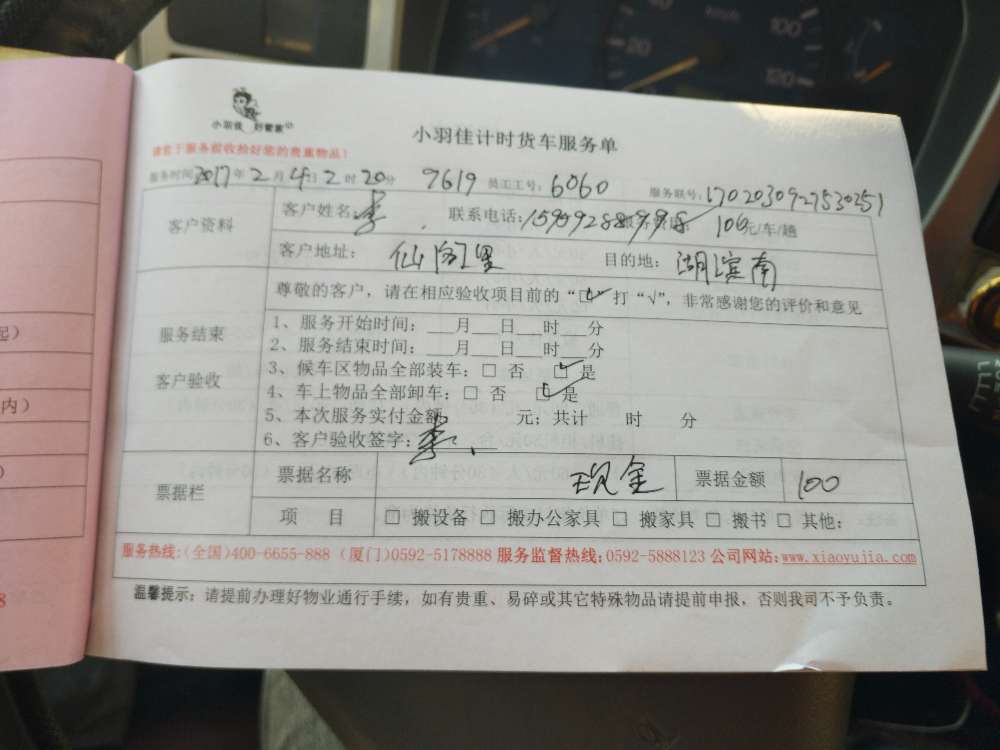 小羽佳 好管家
小羽佳计时货车服务单
请您于服务前收拾好您的贵重物品！
服务时间2017年2月4日2时20分 9619 员工工号：6060 服务联号：1702030927530351
客户资料
客户姓名：李 联系电话： 100元/车/趟
客户地址： 仙阁里 目的地： 湖滨南
服务结束
客户验收
尊敬的客户，请在相应验收项目前的“□”打“√”，非常感谢您的评价和意见
1、服务开始时间：___月___日___时___分
2、服务结束时间：___月___日___时___分
3、候车区物品全部装车：□ 否 ☑ 是
4、车上物品全部卸车：□ 否 ☑ 是
5、本次服务实付金额 元；共计 时 分
6、客户验收签字：李
票据栏
票据名称 现金 票据金额 100
项 目 □ 搬设备 □ 搬办公家具 □ 搬家具 □ 搬书 □ 其他：
服务热线：(全国)400-6655-888 (厦门)0592-5178888 服务监督热线：0592-5888123 公司网站：www.xiaoyujia.com
温馨提示：请提前办理好物业通行手续，如有贵重、易碎或其它特殊物品请提前申报，否则我司不予负责。
起）
内）
）
8
20
40
km/h
100
120